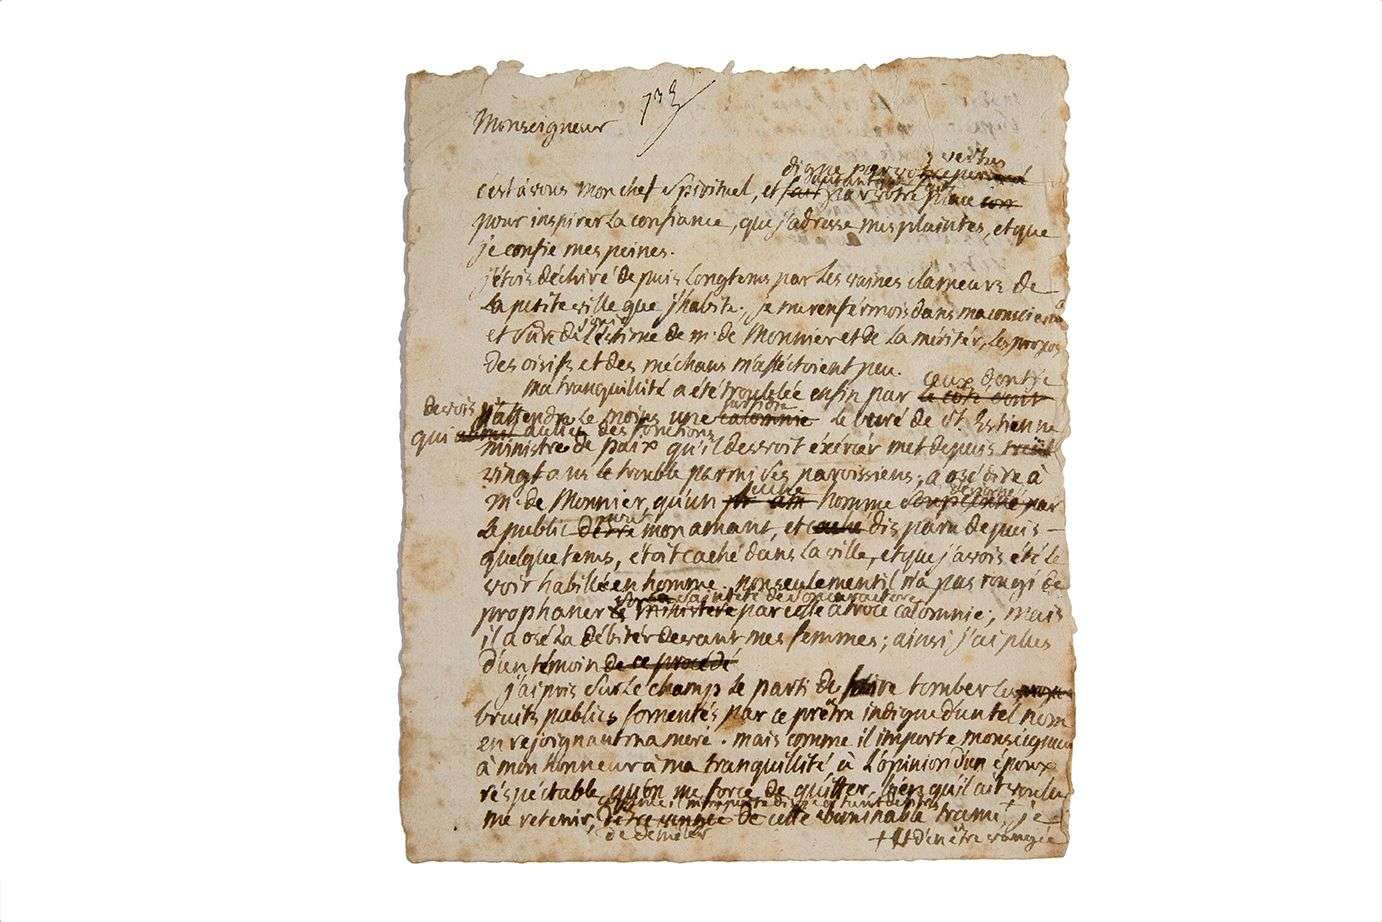 733
Monseigneur
digne par vos vertus
c'est à vous mon chef spirituel, et fait autant par votre place
pour inspirer la confiance, que j'adresse mes plaintes, et que
je confie mes peines.
j'étois déchiré depuis longtems par les vaines clameurs de
la petite ville que j'habite; je me renfermois dans ma conscience
et sure de l'estime de mr. de Monnier et de la mériter, les propos
des oisifs et des méchans m'affectoient peu.
ma tranquillité a été troublée enfin par ceux dont je
devois
m'attendre le moins une calomnie le curé de St. Estienne
qui au lieu des fonctions
ministre de paix qu'il devroit exércér met depuis
vingt ans le trouble parmi ses paroissiens; a osé dire à
mr. de Monnier, qu'un jeune homme soupçonné par
le public d'être mon amant, et disparu depuis
quelque tems, étoit caché dans la ville, et que j'avois été le
voir habillée en homme. non seulement il n'a pas rougi de
la sainteté de son caractère
prophaner le ministere par cette atroce calomnie; mais
il a osé la débiter devant mes femmes; ainsi j'ai plus
d'un témoin de ce procédé
j'ai pris sur le champ le parti de faire tomber les propos
bruits publics fomentés par ce prêtre indigne d'un tel nom
en rejoignant ma mere. mais comme il importe monseigneur
à mon honneur à ma tranquillité à l'opinion d'un époux
réspéctable qu'on me force de quitter, bien qu'il ait voulu
me retenir, d'être vengée de cette abominable trame; je
de demeler
+ et d'en être vangée